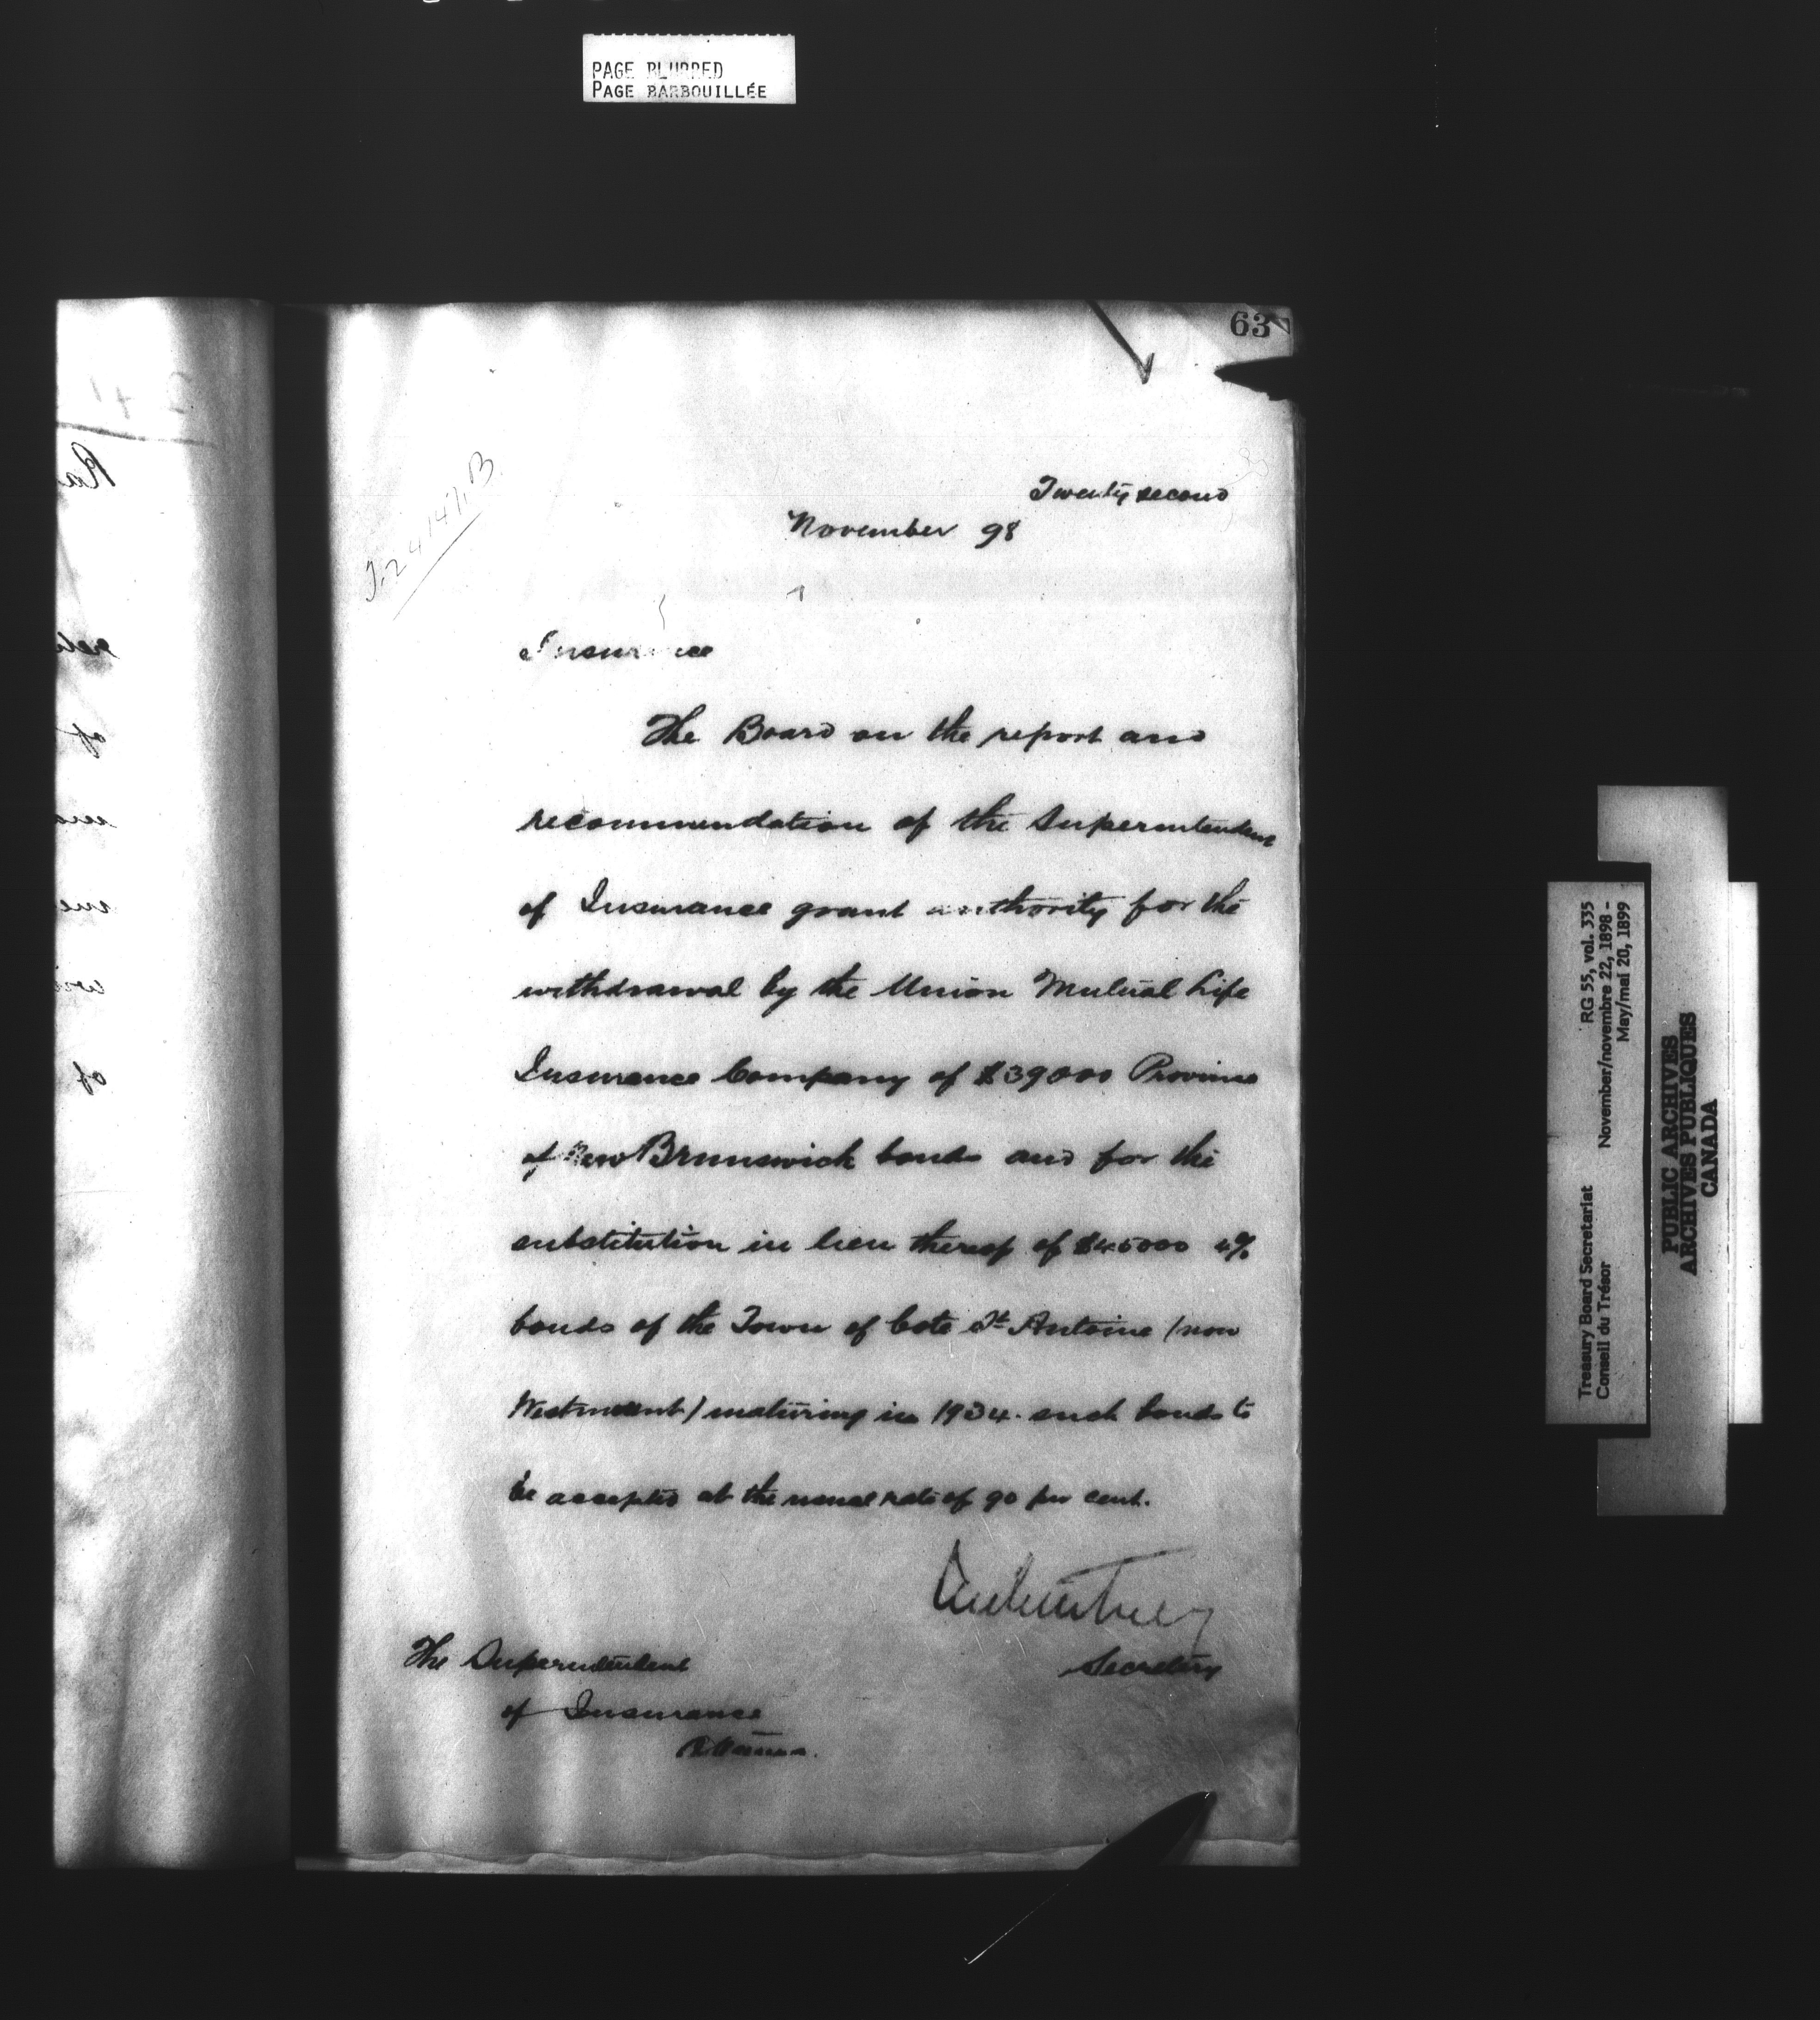 PAGE BLURRED
PAGE BARBOUILLÉE
63
Twenty second
November 98
Insurance
The Board on the report and
recommendation of the Superintendent
of Insurance grant authority for the
withdrawal by the Union Mutual Life
Insurance Company of $39000 Province
of New Brunswick bonds and for the
substitution in lieu thereof of $45000 4%
bonds of the Town of Cote St Antoine (now
Westmount) maturing in 1934. such bonds to
be accepted at the usual rate of 90 per cent.
Secretary
The Superintendent
of Insurance
Ottawa.
Treasury Board Secretariat RG 55, vol. 335
Conseil du Trésor November/novembre 22, 1898 -
May/mai 20, 1899
PUBLIC ARCHIVES
ARCHIVES PUBLIQUES
CANADA